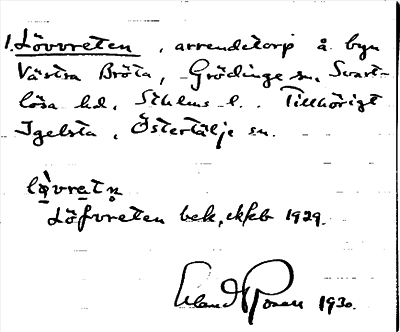 1. Lövvreten, arrendetorp å byn
Västra Bröta, Grödinge sn, Svart-
lösa hd, Sthlms l. Tillhörigt
Igelsta, Östertälje sn.
Löfvreten bek. 1929.
Erland Rosell 1930.